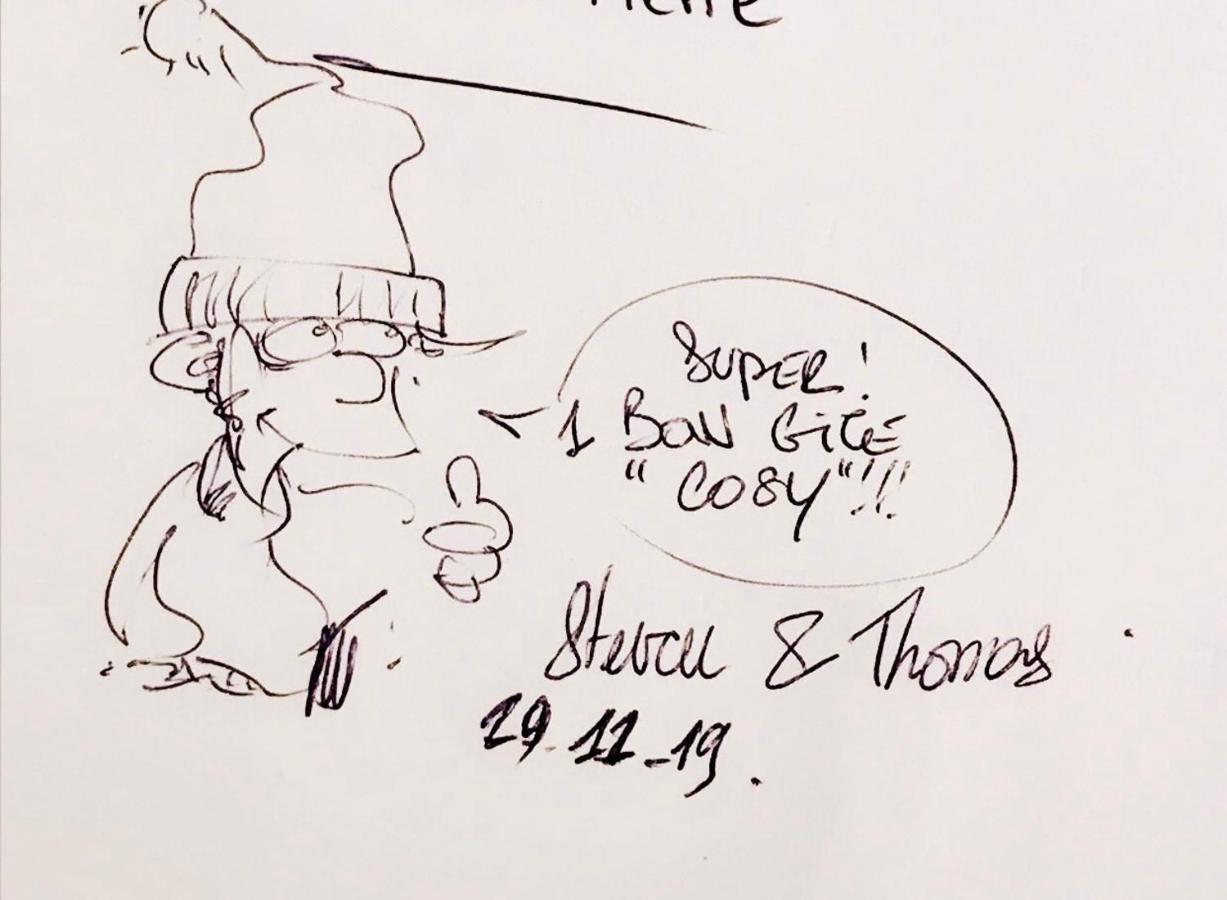 SUPER!
1 BON GiTE
"COSY"!!!
Steven & Thomas.
29.11_19.